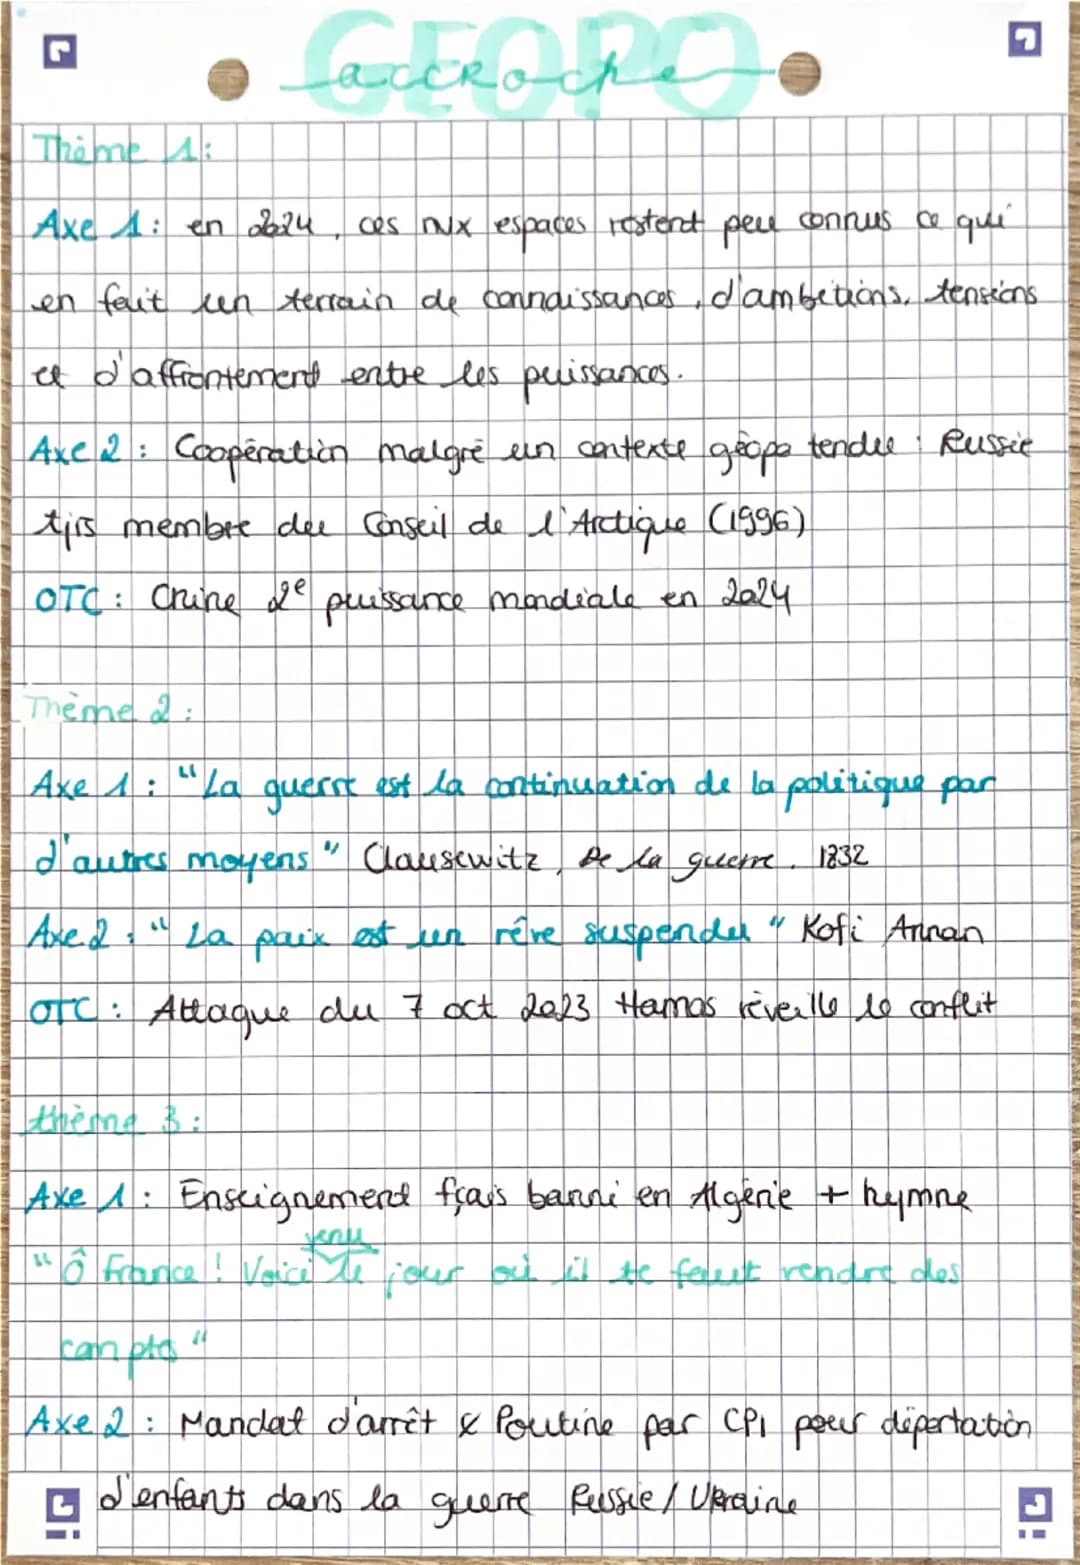 GEOPO
accroche
Thème 1:
Axe 1: en 2024, ces nvx espaces restent peu connus ce qui
en fait un terrain de connaissances, d'ambitions, tensions
et d'affrontement entre les puissances.
Axe 2: Coopération malgré un contexte géopo tendu : Russie
tjrs membre du Conseil de l'Arctique (1996)
OTC: Chine 2e puissance mondiale en 2024
Thème 2:
Axe 1: "La guerre est la continuation de la politique par
d'autres moyens" Clausewitz, De la guerre, 1832
Axe 2: "La paix est un rêve suspendu" Kofi Annan
OTC: Attaque du 7 oct 2023 Hamas réveille le conflit
thème 3:
Axe 1: Enseignement fçais banni en Algérie + hymne
"Ô France! Voici venu le jour où il te faut rendre des
compts"
Axe 2: Mandat d'arrêt x Poutine par CPI pour déportation
d'enfants dans la guerre Russie / Ukraine